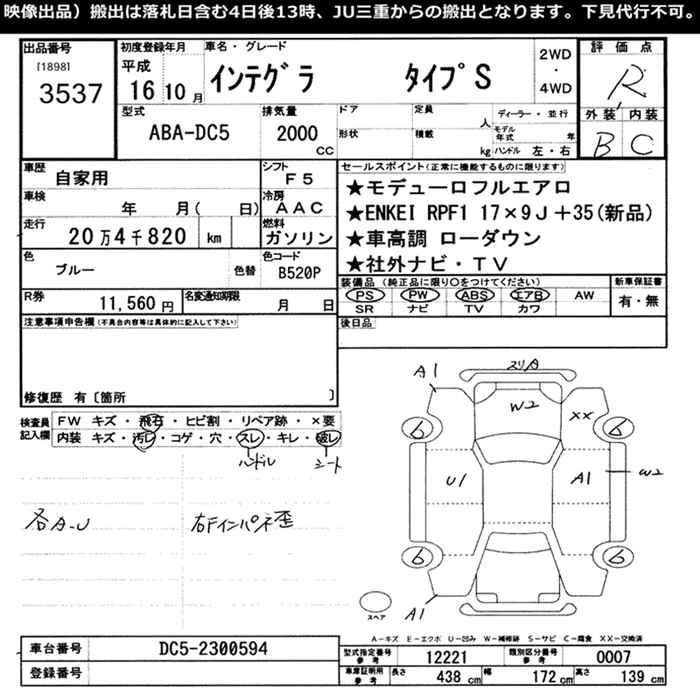 映像出品）搬出は落札日含む4日後13時、JU三重からの搬出となります。下見代行不可。
出品番号
[1898]
3537
初度登録年月
平成
16年10月
車名・グレード
インテグラ タイプS
2WD
・
4WD
評価点
R
外装 内装
B C
型式
ABA-DC5
排気量
2000
CC
ドア
形状
定員
人
積載
kg
ディーラー・並行
モデル年式 年
ハンドル 左・右
車歴
自家用
シフト
F5
車検
年 月( 日)
冷房
AAC
走行
20万4千820 km
燃料
ガソリン
色
ブルー
色替
色コード
B520P
R券
11,560円
名変通知期限
月 日
セールスポイント(正常に機能するものに限ります)
★モデューロフルエアロ
★ENKEI RPF1 17×9J+35(新品)
★車高調 ローダウン
★社外ナビ・TV
装備品(純正品に限り○をつけてください)
PS PW ABS エアB AW
SR ナビ TV カワ
新車保証書
有・無
後日品
注意事項申告欄(不具合内容等は具体的に記入して下さい)
修復歴 有〔箇所 〕
検査員記入欄
FW キズ・飛石・ヒビ割・リペア跡・×要
内装 キズ・汚レ・コゲ・穴・スレ・キレ・破レ
ハンドル
シート
各A-U
右Fインパネ歪
A1
スリA
W2
XX
6
6
U1
A1
W2
6
6
スペア
A1
A-キズ E-エクボ U-凹み W-補修跡 S-サビ C-腐食 XX-交換済
車台番号
DC5-2300594
登録番号
型式指定番号
参考
12221
類別区分番号
参考
0007
車庫証明用
参考
長さ 438 cm
幅 172 cm
高さ 139 cm